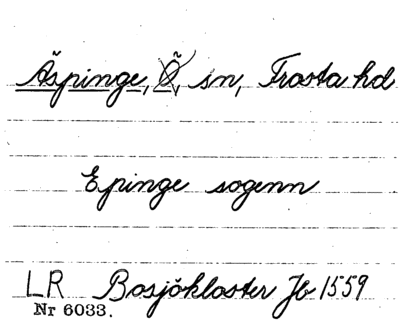 Äspinge, Ö, sn, Frosta hd
Epinge sogenn
LR Bosjökloster Jb 1559
Nr 6033.